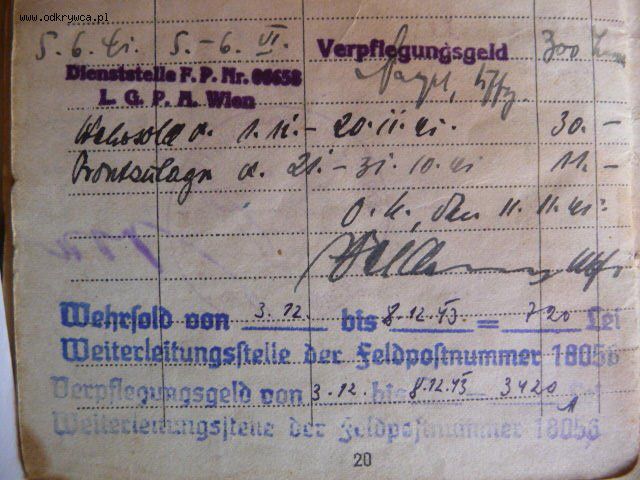 www.odkrywca.pl
5.6.41. 5.-6. VI. Verpflegungsgeld 300
Dienststelle F. P. Nr. 00658
L. G. P. A. Wien
Wehrsold v. 1.11.- 20.11.41. 30.-
Frontzulage v. 21.- 31.10.41 11.-
O.U., den 11.11.41.
Uffz.
Wehrsold von 3.12. bis 8.12.43. = 720 Lei
Weiterleitungsstelle der Feldpostnummer 18056
Verpflegungsgeld von 3.12. bis 8.12.43 = 3420 Lei
Weiterleitungsstelle der Feldpostnummer 18056
20